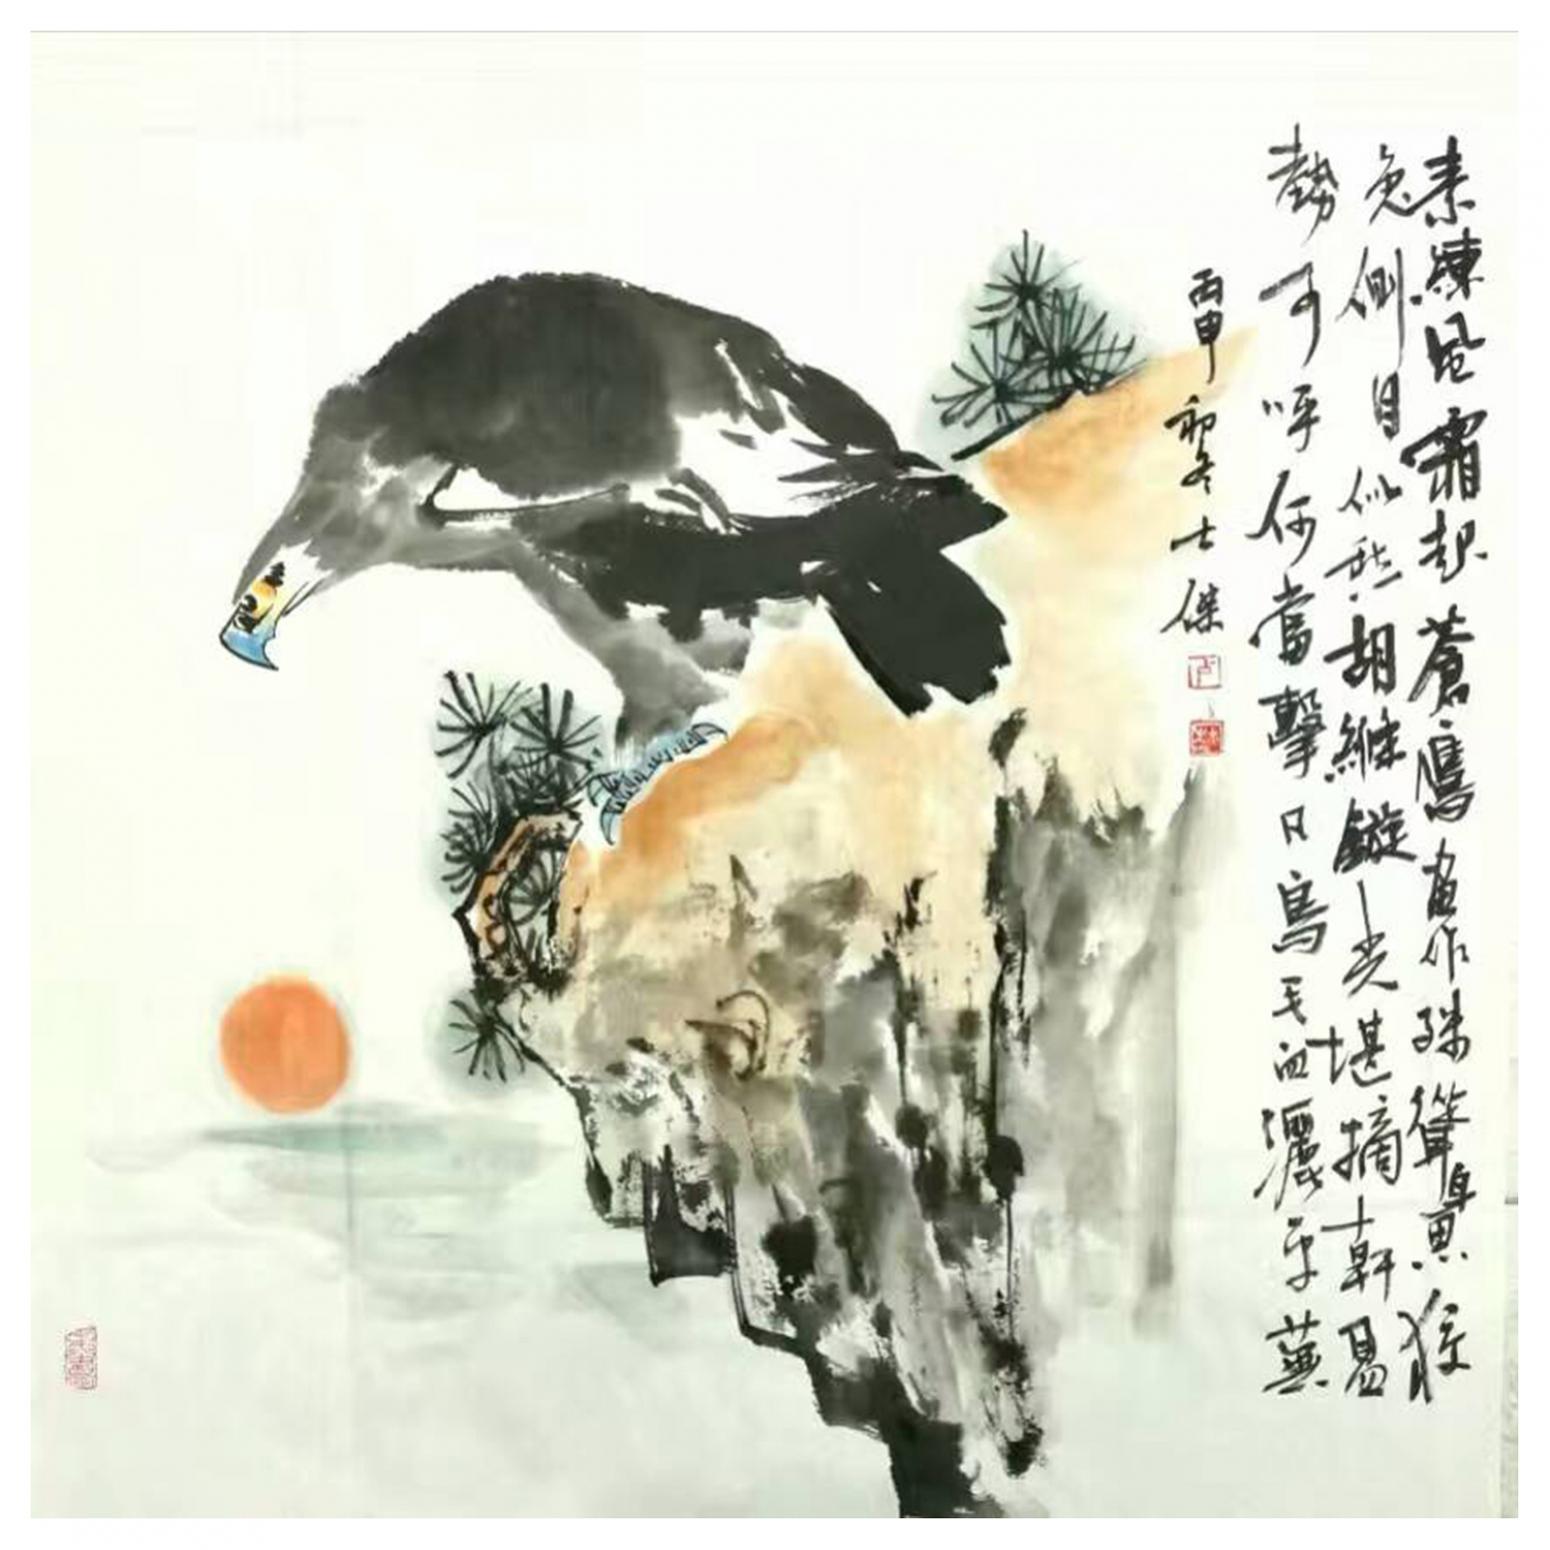 素練風霜起蒼鷹畫作殊聳身思狡
兔側目似愁胡絛鏇光堪摘軒楹
勢可呼何當擊凡鳥毛血灑平蕪
丙申初冬士傑